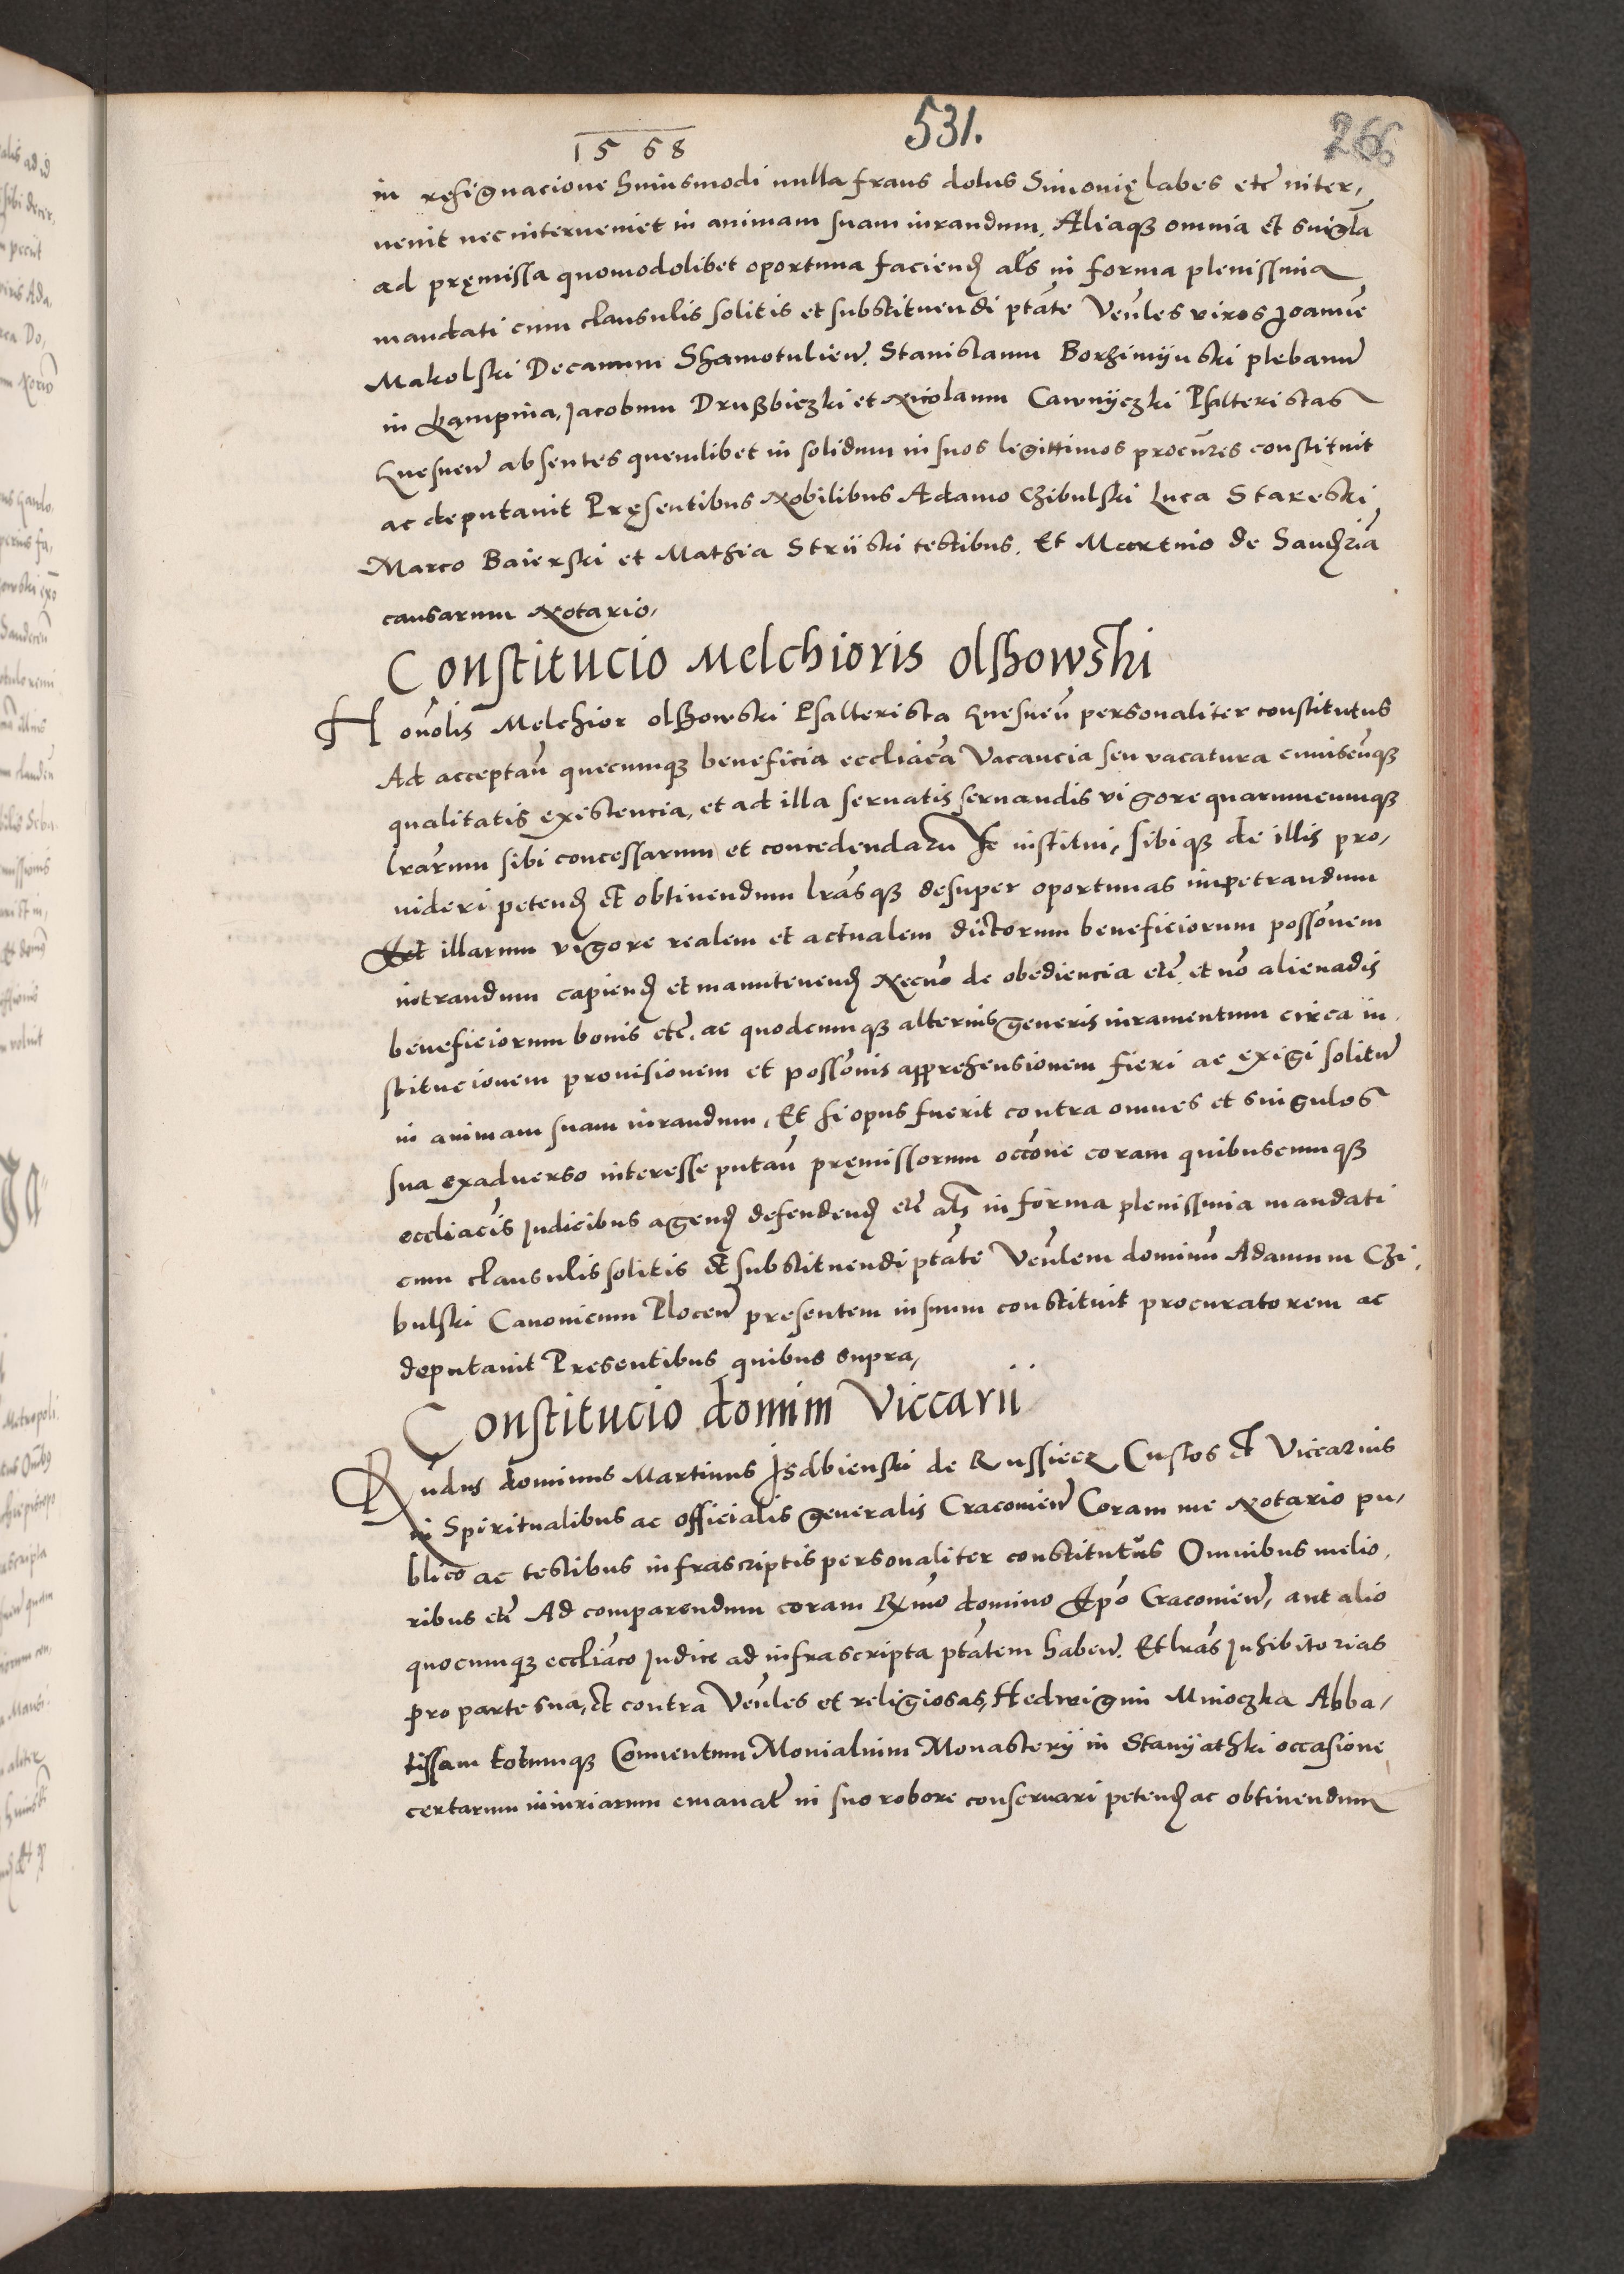 531.
266
1568
in resignacione huiusmodi nulla fraus dolus Simonię labes etc̃ inter,
uenit nec interueniet in animam suam iurandum. Aliaqꝫ omnia et singl̃a
ad pręmissa quomodolibet oportuna faciend̃ als̃ in forma plenissima
mandati cum clausulis solitis et substituendi ptãte Veñles viros Joannẽ
Makolski Decanum Shamotulieñ. Stanislaum Borzimijnski plebanũ
in Lampina, Jacobum Drusbiczki et Nicolaum Cawnijczki Psalteristas
Gnesneñ absentes quemlibet in solidum in suos legittimos procũres constituit
ac deputauit Pręsentibus Nobilibus Adamo Czibulski Luca Stareski
Marco Baierski et Mathia Striiski testibus. Et Martino de Sandʒiã
causarum Notario,
Constitucio Melchioris olshowski
Honõlis Melchior olshowski Psalterista Gnesneñ personaliter constitutus
Ad acceptañ quecumqꝫ beneficia eccliacã Vacancia seu vacatura cuiuscũqꝫ
qualitatis existencia, et ad illa seruatis seruandis vigore quarumcumqꝫ
lrãrum sibi concessarum et concedendarũ se institui, sibiqꝫ de illis pro,
uideri petend̃ et obtinendum lrãsqꝫ desuper oportunas impetrandum
Et illarum vigore realem et actualem dictorum beneficiorum possõnem
intrandum capiend̃ et manutenend̃ Necnõ de obediencia etc̃. et nõ alienadis
beneficiorum bonis etc̃. ac quodcumqꝫ alterius generis iuramentum circa in,
stitucionem prouisionem et possõnis apprehensionem fieri ac exigi solitũ
in animam suam iurandum, Et si opus fuerit contra omnes et singulos
sua exaduerso interesse putañ pręmissorum occõne coram quibuscumqꝫ
eccliacis Judicibus agend̃ defendend̃ etc̃ als̃ in forma plenissima mandati
cum clausulis solitis et substituendi ptãte Veñlem dominũ Adamum Czi,
bulski Canonicum Ploceñ presentem in suum constituit procuratorem ac
deputauit Presentibus quibus supra,
Constitucio domini Viccarii
Rñdus dominus Martinus Jsdbienski de Russiecz Custos et Viccarius
in Spiritualibus ac officialis generalis Cracouieñ Coram me Notario pu,
blico ac testibus infrascriptis personaliter constitutus Omnibus melio,
ribus etc̃ Ad comparendum coram Rxmo domino Epõ Cracouieñ, aut alio
quocumqꝫ eccliãco Judice ad infrascripta ptãtem habeñ. Et lrãs Inhibitorias
pro parte sua, et contra Veñles et religiosas, Hedwigim Mnioczka Abba,
tissam totumqꝫ Conuentum Monialuim Monasterij in Stanijathki occasione
certarum iniuriarum emanat̃ in suo robore conseruari petend̃ ac obtinendum